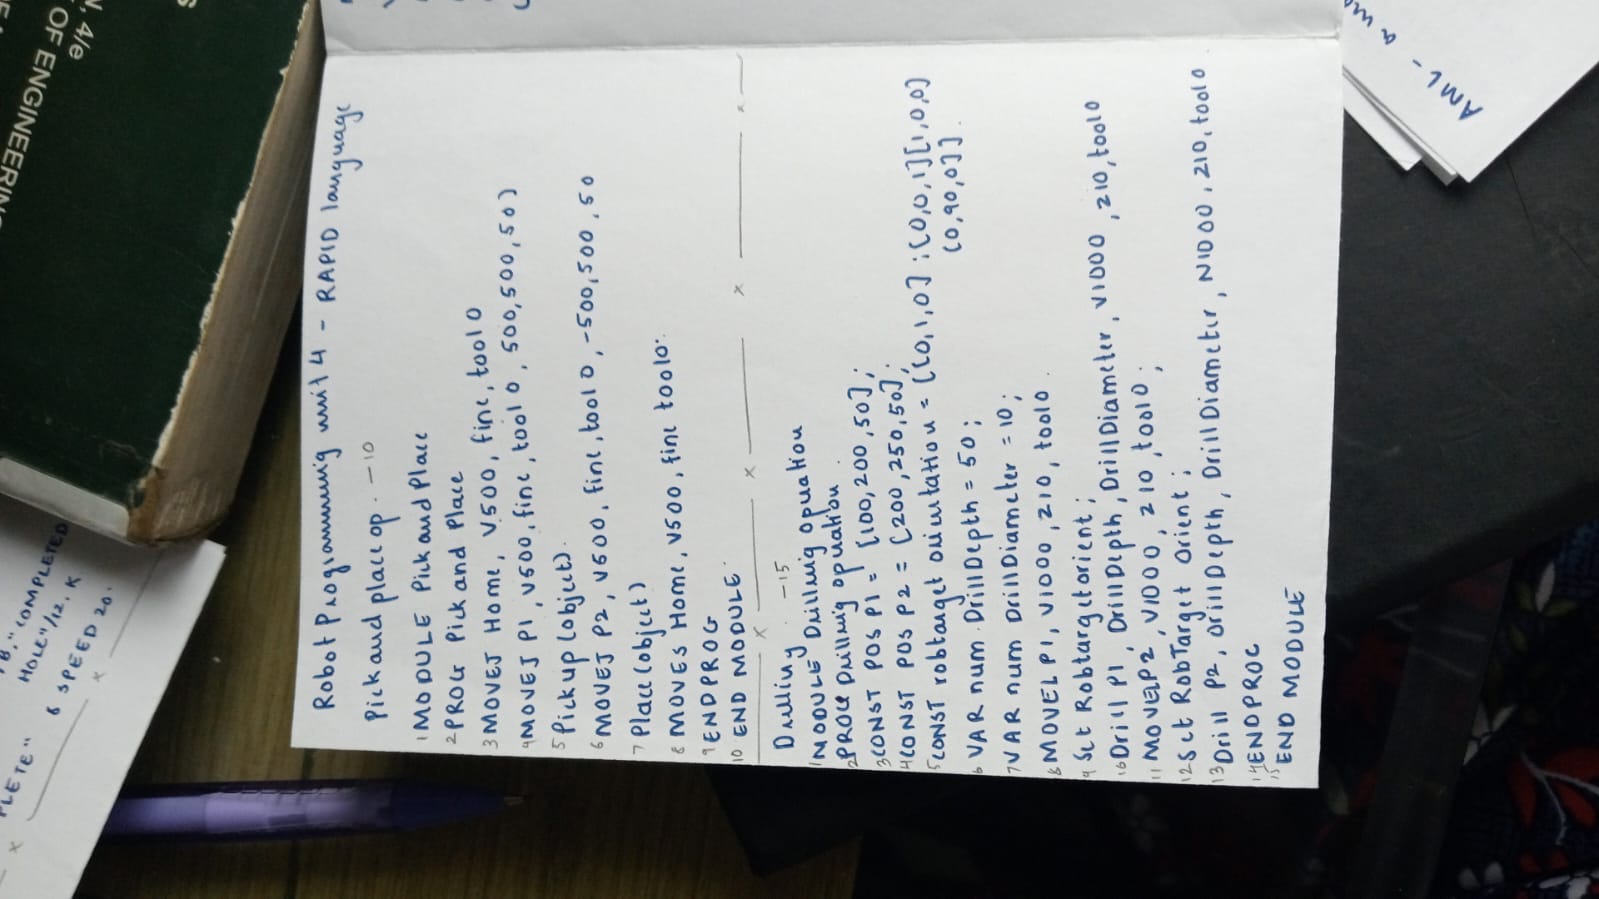 PLETE"
B, "COMPLETED
HOLE"/12. K
6 SPEED 20.
OF ENGINEERING
N, 4/e
Robot Programming unit 4 - RAPID language
Pick and place op. - 10
1 MODULE Pick and Place
2 PROG Pick and Place
3 MOVEJ Home, V500, fine, tool 0
4 MOVEJ P1, V500, fine, tool 0, 500, 500, 50)
5 Pick up (object).
6 MOVEJ P2, V500, fine, tool 0, -500, 500, 50
7 Place (object)
8 MOVES Home, V500, fine tool0.
9 ENDPROG
10 END MODULE
Drilling - 15
1 MODULE Drilling operation
2 PROG Drilling operation
3 CONST POS P1 = [100, 200, 50];
4 CONST POS P2 = [200, 250, 50];
5 CONST robtarget orientation = [[0, 1, 0] ; [0, 0, 1][1, 0, 0]
[0, 90, 0]].
6 VAR num DrillDepth = 50;
7 VAR num DrillDiameter = 10;
8 MOVEL P1, V1000, 210, tool0
9 Set Robtargetorient;
10 Drill P1, DrillDepth, DrillDiameter, V1000, 210, tool0
11 MOVEL P2, V1000, 210, tool0;
12 Set RobTarget Orient;
13 Drill P2, DrillDepth, DrillDiameter, N1000, 210, tool0
14 ENDPROC
15 END MODULE
AML -